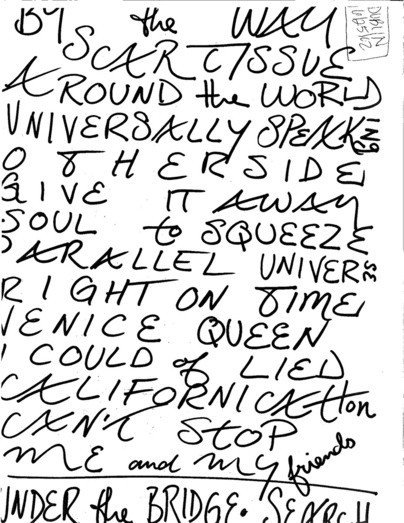 BY the WAY
DUBLIN
SCAR TISSUE
AROUND the WORLD
UNIVERSALLY SPEAKING
OTHERSIDE
GIVE IT AWAY
SOUL to SQUEEZE
PARALLEL UNIVERSE
RIGHT ON TIME
VENICE QUEEN
I COULD of LIED
CALIFORNICATION
CAN'T STOP
ME and MY friends
UNDER the BRIDGE. SEARCH